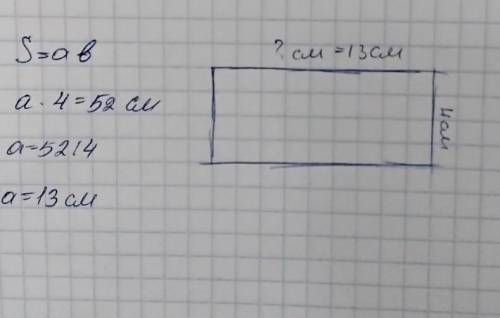 S=ab
a · 4 = 52 см
a=52/4
a=13 см
? см = 13 см
4 см